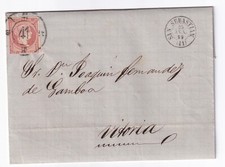 SAN SEBASTIAN
Sr. Dn. Joaquin Fernandez
de Gamboa
Vitoria